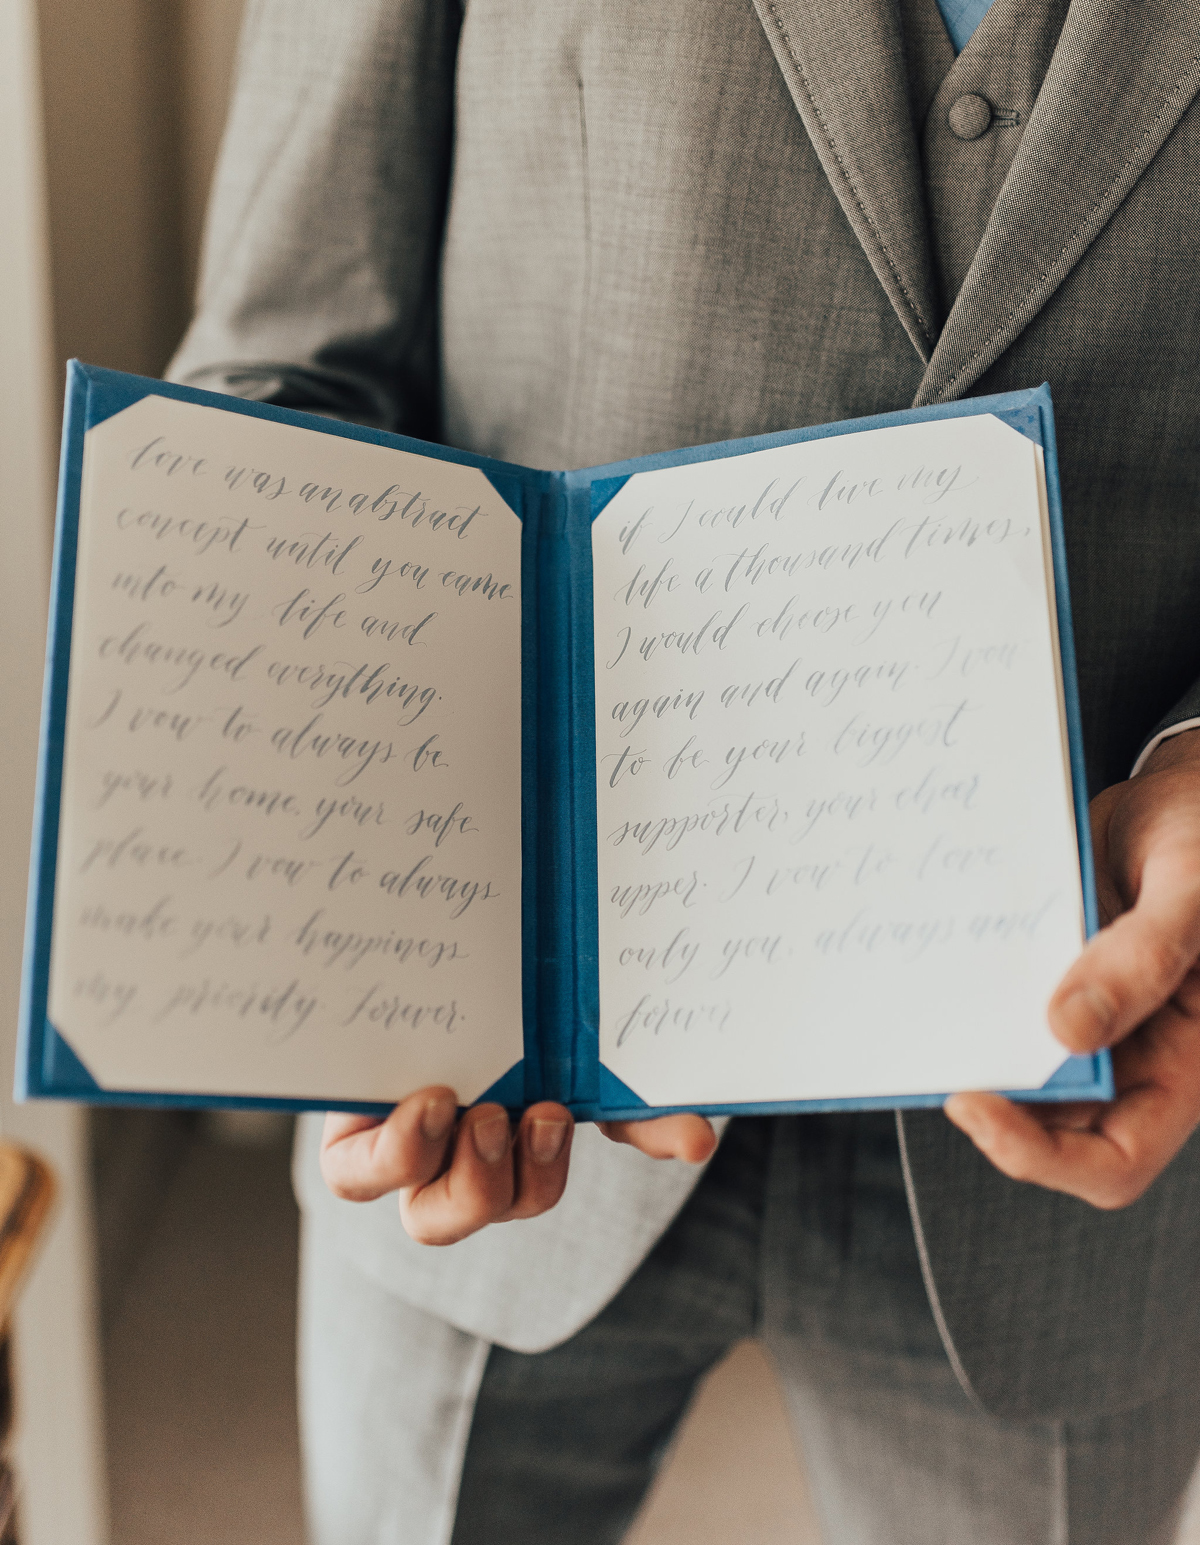 love was an abstract
concept until you came
into my life and
changed everything.
I vow to always be
your home, your safe
place. I vow to always
make your happiness
my priority. Forever.
if I could live my
life a thousand times,
I would choose you
again and again. I vow
to be your biggest
supporter, your chear
upper. I vow to love
only you, always and
forever